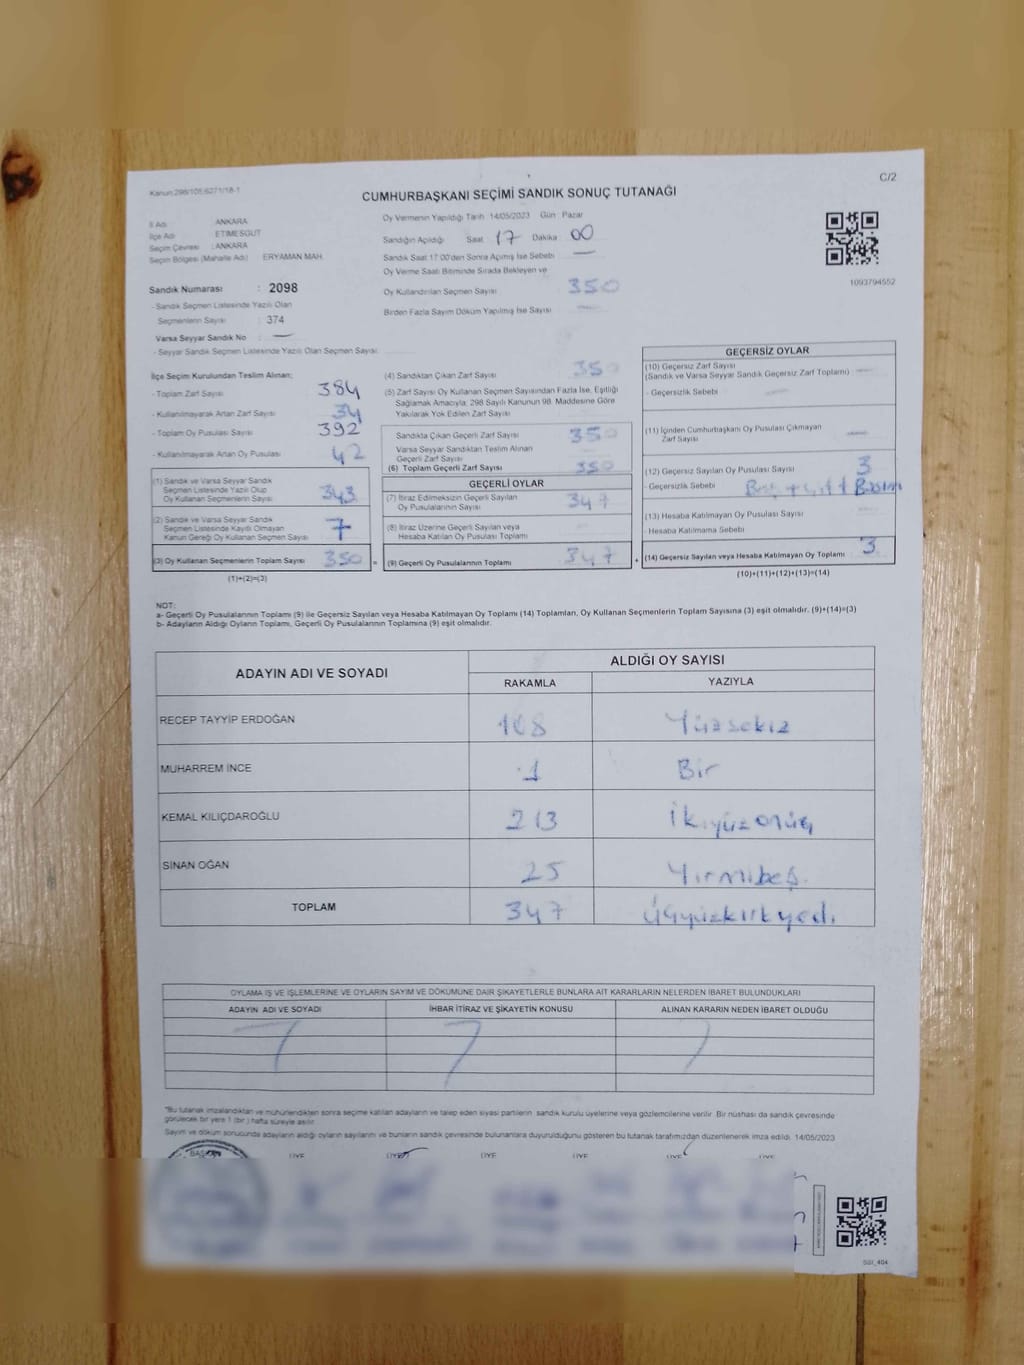 Kanun:298/105;6271/18-1
C/2
CUMHURBAŞKANI SEÇİMİ SANDIK SONUÇ TUTANAĞI
İl Adı : ANKARA
İlçe Adı : ETİMESGUT
Seçim Çevresi : ANKARA
Seçim Bölgesi (Mahalle Adı) : ERYAMAN MAH.
Sandık Numarası : 2098
- Sandık Seçmen Listesinde Yazılı Olan
Seçmenlerin Sayısı : 374
Varsa Seyyar Sandık No : —
- Seyyar Sandık Seçmen Listesinde Yazılı Olan Seçmen Sayısı:
Oy Vermenin Yapıldığı Tarih 14/05/2023 Gün : Pazar
Sandığın Açıldığı Saat 17 Dakika 00
Sandık Saat 17:00'den Sonra Açımış İse Sebebi —
Oy Verme Saati Bitiminde Sırada Bekleyen ve
Oy Kullandırılan Seçmen Sayısı 350
Birden Fazla Sayım Döküm Yapılmış İse Sayısı —
1093794552
İlçe Seçim Kurulundan Teslim Alınan;
- Toplam Zarf Sayısı 384
- Kullanılmayarak Artan Zarf Sayısı 34
- Toplam Oy Pusulası Sayısı 392
- Kullanılmayarak Artan Oy Pusulası 42
(1) Sandık ve Varsa Seyyar Sandık
Seçmen Listesinde Yazılı Olup
Oy Kullanan Seçmenlerin Sayısı 343
(2) Sandık ve Varsa Seyyar Sandık
Seçmen Listesinde Kaydı Olmayan
Kanun Gereği Oy Kullanan Seçmen Sayısı 7
(3) Oy Kullanan Seçmenlerin Toplam Sayısı 350 =
(1)+(2)=(3)
(4) Sandıktan Çıkan Zarf Sayısı 350
(5) Zarf Sayısı Oy Kullanan Seçmen Sayısından Fazla İse, Eşitliği
Sağlamak Amacıyla; 298 Sayılı Kanunun 98. Maddesine Göre
Yakılarak Yok Edilen Zarf Sayısı
Sandıkta Çıkan Geçerli Zarf Sayısı 350
Varsa Seyyar Sandıktan Teslim Alınan
Geçerli Zarf Sayısı
(6) Toplam Geçerli Zarf Sayısı 350
GEÇERLİ OYLAR
(7) İtiraz Edilmeksizin Geçerli Sayılan
Oy Pusulalarının Sayısı 347
(8) İtiraz Üzerine Geçerli Sayılan veya
Hesaba Katılan Oy Pusulası Toplamı
(9) Geçerli Oy Pusulalarının Toplamı 347 +
GEÇERSİZ OYLAR
(10) Geçersiz Zarf Sayısı
(Sandık ve Varsa Seyyar Sandık Geçersiz Zarf Toplamı) —
- Geçersizlik Sebebi —
(11) İçinden Cumhurbaşkanı Oy Pusulası Çıkmayan
Zarf Sayısı —
(12) Geçersiz Sayılan Oy Pusulası Sayısı 3
- Geçersizlik Sebebi
(13) Hesaba Katılmayan Oy Pusulası Sayısı
- Hesaba Katılmama Sebebi
(14) Geçersiz Sayılan veya Hesaba Katılmayan Oy Toplamı 3
(10)+(11)+(12)+(13)=(14)
NOT:
a- Geçerli Oy Pusulalarının Toplamı (9) ile Geçersiz Sayılan veya Hesaba Katılmayan Oy Toplamı (14) Toplamları, Oy Kullanan Seçmenlerin Toplam Sayısına (3) eşit olmalıdır. (9)+(14)=(3)
b- Adayların Aldığı Oyların Toplamı, Geçerli Oy Pusulalarının Toplamına (9) eşit olmalıdır.
ADAYIN ADI VE SOYADI
ALDIĞI OY SAYISI
RAKAMLA YAZIYLA
RECEP TAYYİP ERDOĞAN 108 Yüzsekiz
MUHARREM İNCE 1 Bir
KEMAL KILIÇDAROĞLU 213 İkiyüzonüç
SİNAN OĞAN 25 Yirmibeş.
TOPLAM 347 Üçyüzkırkyedi
OYLAMA İŞ VE İŞLEMLERİNE VE OYLARIN SAYIM VE DÖKÜMÜNE DAİR ŞİKAYETLERLE BUNLARA AİT KARARLARIN NELERDEN İBARET BULUNDUKLARI
ADAYIN ADI VE SOYADI İHBAR İTİRAZ VE ŞİKAYETİN KONUSU ALINAN KARARIN NEDEN İBARET OLDUĞU
"Bu tutanak imzalandıktan ve mühürlendikten sonra seçime katılan adayların ve talep eden siyasi partilerin sandık kurulu üyelerine veya gözlemcilerine verilir. Bir nüshası da sandık çevresinde
görülecek bir yere 1 (bir) hafta süreyle asılır.
Sayım ve döküm sonucunda adayların aldığı oyların sayılarını ve bunların sandık çevresinde bulunanlara duyurulduğunu gösteren bu tutanak tarafımızdan düzenlenerek imza edildi. 14/05/2023
BAŞKAN ÜYE ÜYE ÜYE ÜYE ÜYE ÜYE